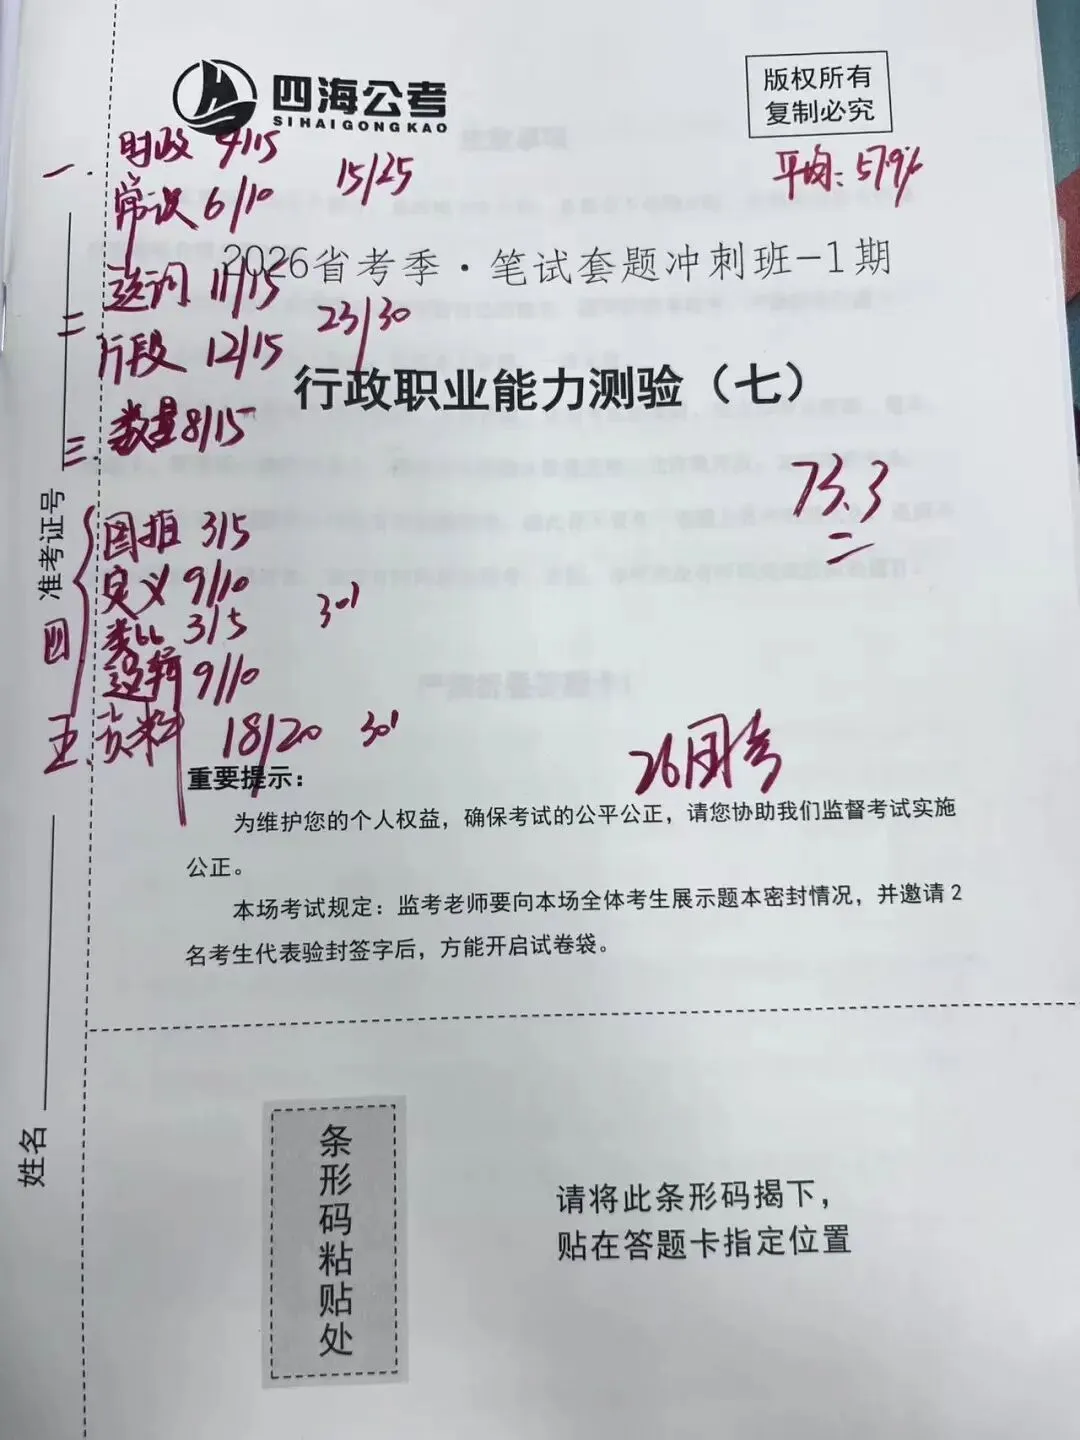 四海公考
SIHAIGONGKAO
版权所有
复制必究
平均：57.9%
一. 时政 9/15
常识 6/10
15/25
2026省考季·笔试套题冲刺班-1期
二 选词 11/15
片段 12/15
23/30
行政职业能力测验（七）
三. 数量 8/15
73.3
四 图推 3/5
定义 9/10
类比 3/5
逻辑 9/10
30'
五. 资料 18/20 30'
26国考
重要提示：
为维护您的个人权益，确保考试的公平公正，请您协助我们监督考试实施
公正。
本场考试规定：监考老师要向本场全体考生展示题本密封情况，并邀请2
名考生代表验封签字后，方能开启试卷袋。
准考证号
姓名
条形码粘贴处
请将此条形码揭下，
贴在答题卡指定位置